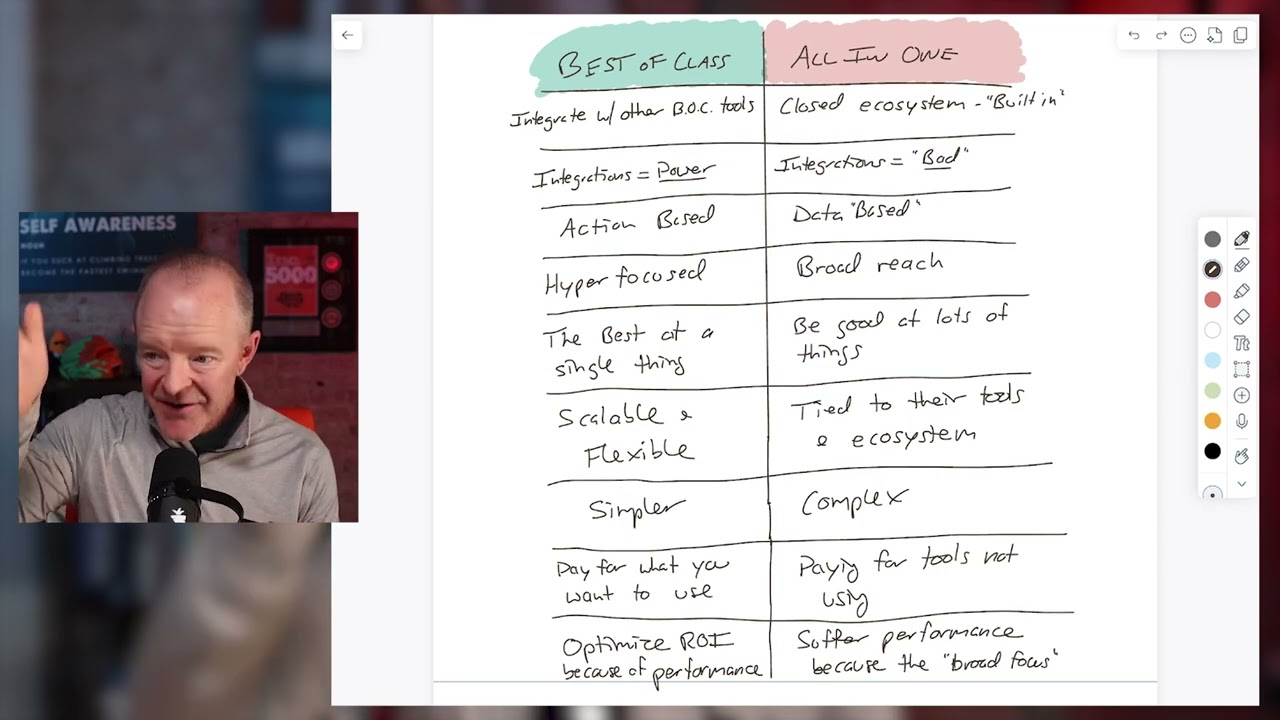 BEST OF CLASS
ALL IN ONE
Integrate w/ other B.O.C. tools
Closed ecosystem - "Built in"
Integrations = Power
Integrations = "Bad"
Action Based
Data "Based"
Hyper focused
Broad reach
The Best at a
single thing
Be good at lots of
things
Scalable &
Flexible
Tied to their tools
& ecosystem
Simpler
Complex
Pay for what you
want to use
Paying for tools not
using
Optimize ROI
because of performance
Suffer performance
because the "broad focus"
SELF AWARENESS
NOUN
IF YOU SUCK AT CLIMBING TREES
BECOME THE FASTEST
Inc.
5000
Tt